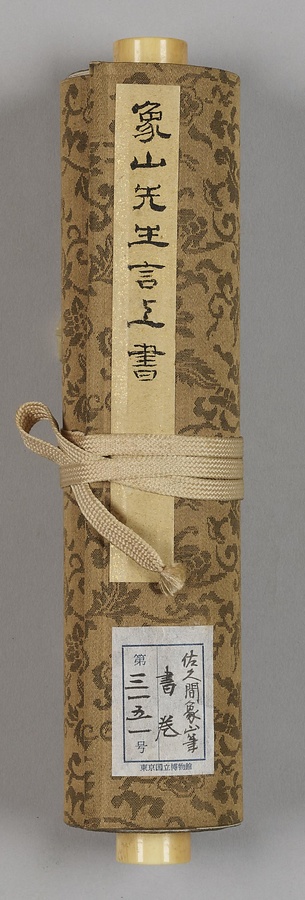 象山先生言上書
佐久間象山筆
書巻
第三一五一号
東京国立博物館